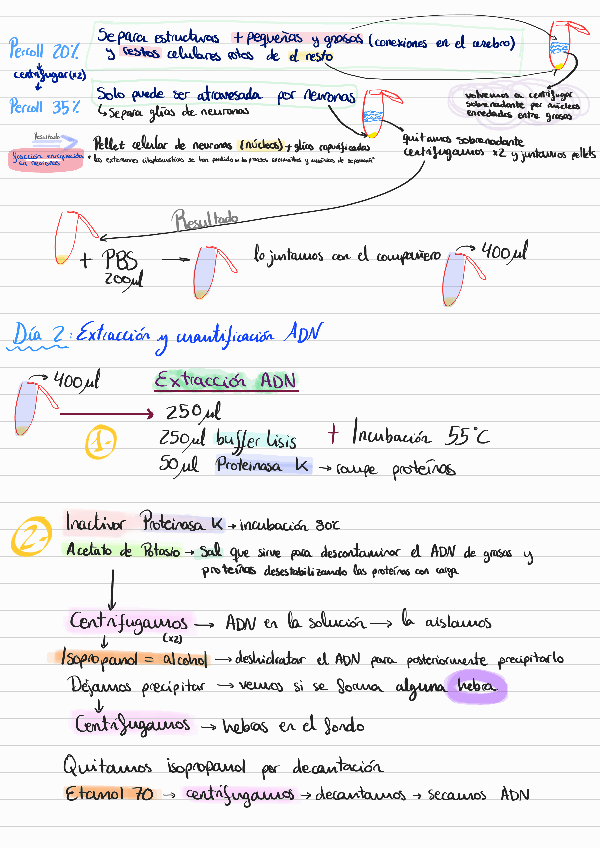 Percoll 20%
Separa estructuras + pequeñas y grasas (conexiones en el cerebro)
y restos celulares rotos de el resto
centrifugar (x2)
Percoll 35%
Solo puede ser atravesada por neuronas
↳ Separa glías de neuronas
volvemos a centrifugar
sobrenadante por núcleos
enredados entre grasas
Resultado
fracción enriquecida
en neuronas
Pellet celular de neuronas (núcleos) + glías
quitamos sobrenadante
centrifugamos x2 y juntamos pellets
Resultado
+ PBS
200µl
lo juntamos con el compañero
400µl
Día 2: Extracción y cuantificación ADN
400µl
Extracción ADN
1.
250µl
250µl buffer lisis
50µl Proteinasa K → rompe proteínas
+ Incubación 55°C
2.
Inactivar Proteinasa K → incubación 80c
Acetato de Potasio → Sal que sirve para descontaminar el ADN de grasas y
proteínas desestabilizando las proteínas con carga
Centrifugamos → ADN en la solución → la aislamos
(x2)
Isopropanol = alcohol → deshidratar el ADN para posteriormente precipitarlo
Dejamos precipitar → vemos si se forma alguna hebra
Centrifugamos → hebras en el fondo
Quitamos isopropanol por decantación
Etanol 70 → centrifugamos → decantamos → secamos ADN